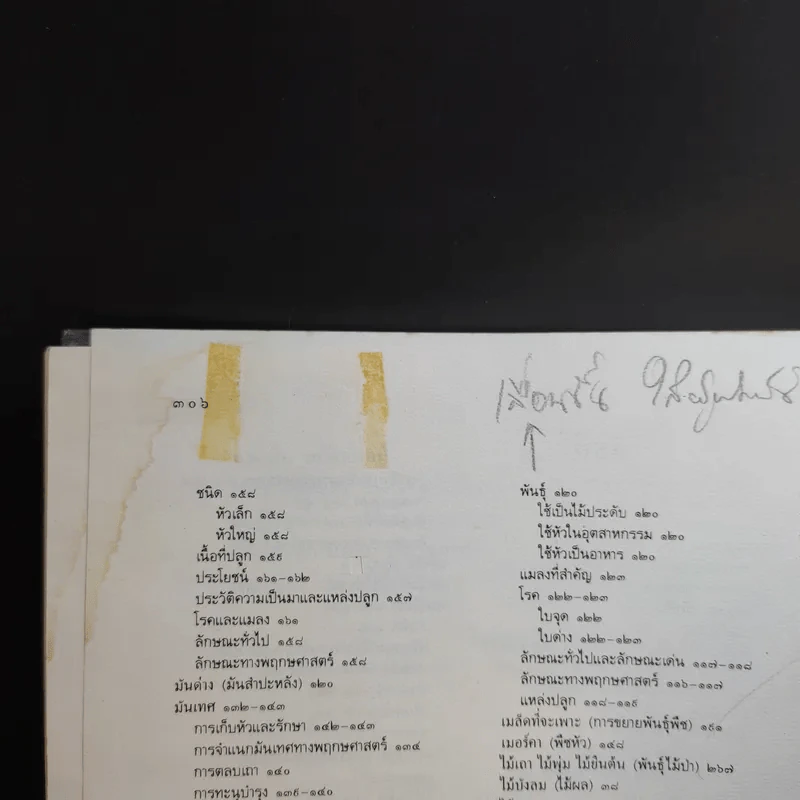 ๓๐๖
เลื่อนขึ้น
ชนิด ๑๕๘
หัวเล็ก ๑๕๘
หัวใหญ่ ๑๕๘
เนื้อที่ปลูก ๑๕๙
ประโยชน์ ๑๖๑-๑๖๒
ประวัติความเป็นมาและแหล่งปลูก ๑๕๗
โรคและแมลง ๑๖๑
ลักษณะทั่วไป ๑๕๘
ลักษณะทางพฤกษศาสตร์ ๑๕๘
มันด่าง (มันสำปะหลัง) ๑๒๐
มันเทศ ๑๓๒-๑๔๓
การเก็บหัวและรักษา ๑๔๒-๑๔๓
การจำแนกมันเทศทางพฤกษศาสตร์ ๑๓๔
การตลบเถา ๑๔๐
การทะนุบำรุง ๑๓๙-๑๔๐
พันธุ์ ๑๒๐
ใช้เป็นไม้ประดับ ๑๒๐
ใช้หัวในอุตสาหกรรม ๑๒๐
ใช้หัวเป็นอาหาร ๑๒๐
แมลงที่สำคัญ ๑๒๓
โรค ๑๒๒-๑๒๓
ใบจุด ๑๒๒
ใบด่าง ๑๒๒-๑๒๓
ลักษณะทั่วไปและลักษณะเด่น ๑๑๗-๑๑๘
ลักษณะทางพฤกษศาสตร์ ๑๑๖-๑๑๗
แหล่งปลูก ๑๑๘-๑๑๙
เมล็ดที่จะเพาะ (การขยายพันธุ์พืช) ๑๙๑
เมอร์คา (พืชหัว) ๑๔๘
ไม้เถา ไม้พุ่ม ไม้ยืนต้น (พันธุ์ไม้ป่า) ๒๖๗
ไม้บังลม (ไม้ผล) ๓๘